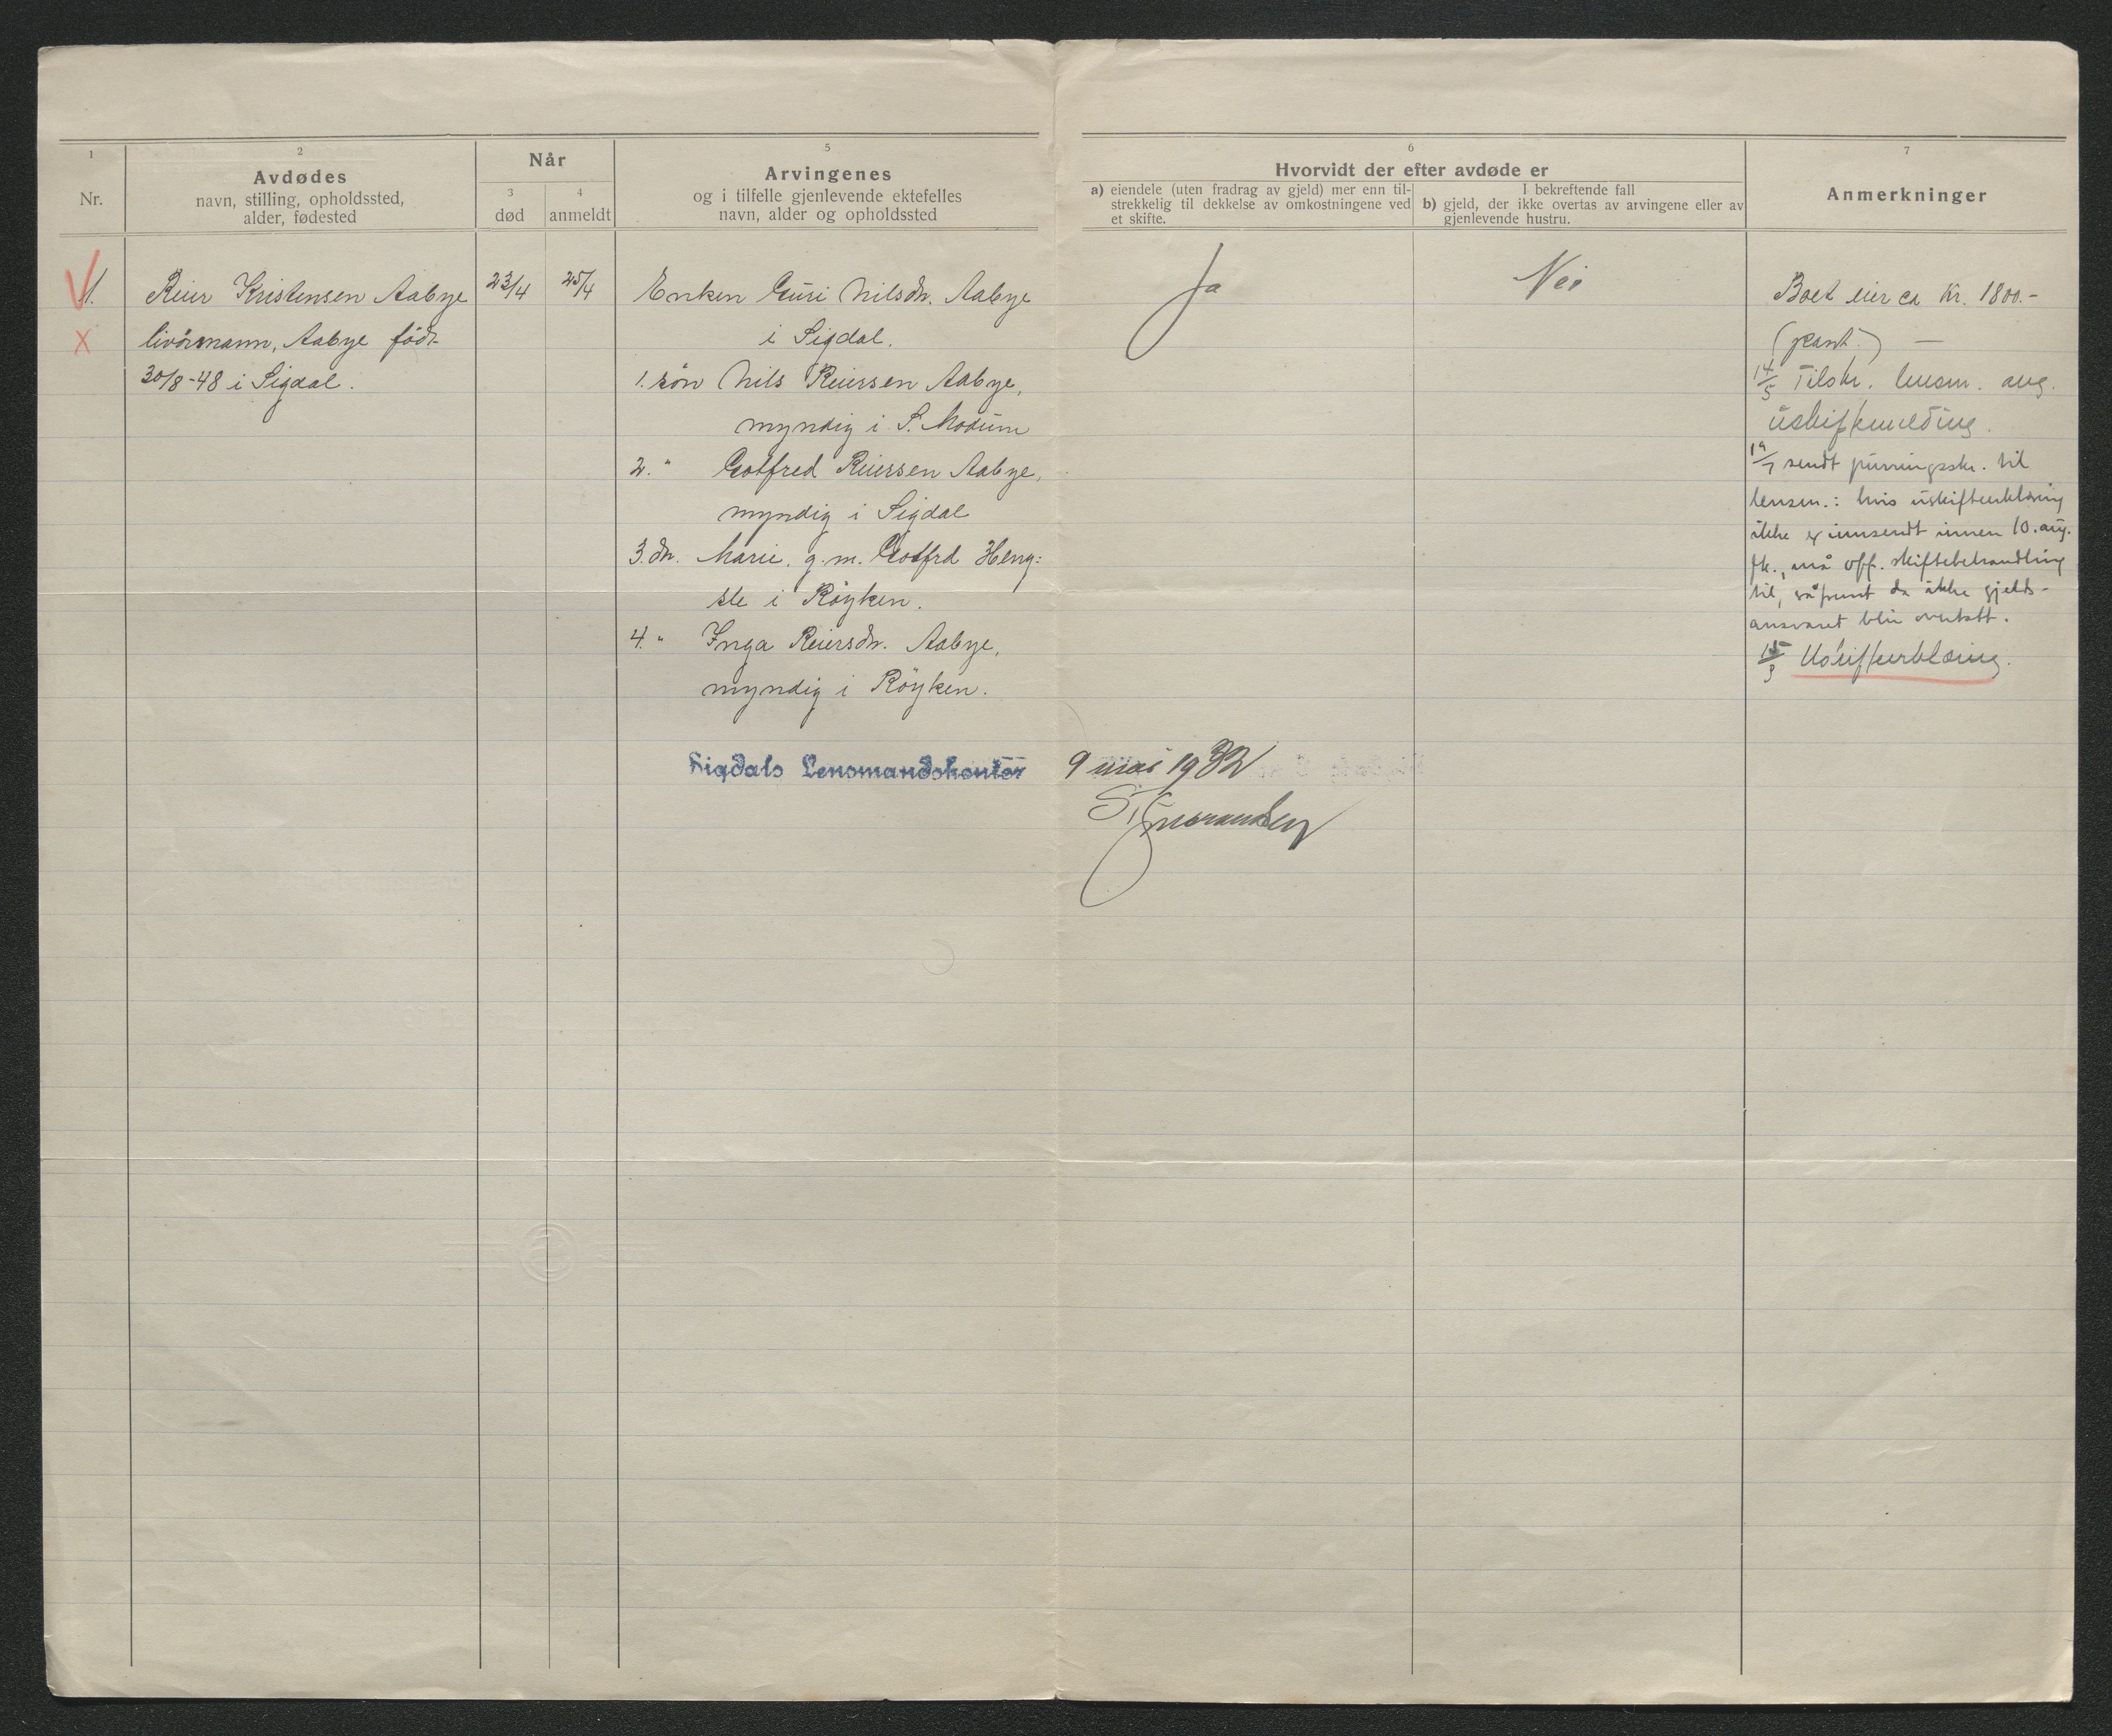 1
Nr.
2
Avdødes
navn, stilling, opholdssted,
alder, fødested
Når
3
død
4
anmeldt
5
Arvingenes
og i tilfelle gjenlevende ektefelles
navn, alder og opholdssted
6
Hvorvidt der efter avdøde er
a) eiendele (uten fradrag av gjeld) mer enn til-
strekkelig til dekkelse av omkostningene ved
et skifte.
I bekreftende fall
b) gjeld, der ikke overtas av arvingene eller av
gjenlevende hustru.
7
Anmerkninger
1.
X
Reier Kristensen Aabye
livörmann, Aabye född
30/8-48 i Sigdal.
23/4
25/4
Enken Guri Nilsdr. Aabye
i Sigdal.
1. sön Nils Reiersen Aabye,
myndig i S. Modum
2. " Gotfred Reiersen Aabye,
myndig i Sigdal
3. dr. Marie, g.m. Gotfrd Heng:
sle i Röyken.
4. " Inga Reiersdr. Aabye,
myndig i Röyken.
Ja
Nei
Boet eier ca kr. 1800.-
(pant.) —
14/5 Tilskr. lensm. ang.
uskiftemelding.
19/7 sendt purringsskr. til
lensm.: hvis uskifteerklæring
ikke er innsendt innen 10. aug.
fk., må off. skiftebehandling
til, såfremt da ikke gjelds-
ansvaret blir overtatt.
Uskifteerklæring.
Sigdals Lensmandskontor
9 mai 1932